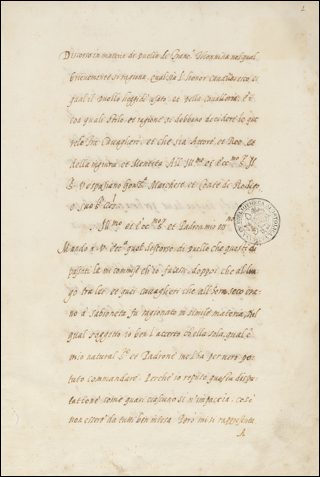 Discorso in materia di Duello di
brievemente si ragiona, qual sia l'honor cavalleresco, et
qual il Duello hoggidì usato, et della Cavalleria, et
con quali stile, et ragione si debbano decidere le que
rele fra Cavaglieri, et che sia Attore, et Reo, et
della ingiuria, et Mentita. All' Ill.mo et Ecc.mo S.
S. Vespasiano Gonz. Marchese, et Conte di
Ill.mo et Ecc.mo S. et Padron mio
Mando a V. Ecc. quel discorso di Duello che questi dì
passati la mi commise ch'io facessi, doppoi che al
go tra lei et quei cavaglieri che all'hora seco era
no à Sabioneta fu ragionato in simile materia, del
qual soggetto io ben l'accerto che ella sola, qual è
mio natural S. et Padrone me l'ha per vero po
tuto commandare. Perche io reputo questa dispu
tatione, come quasi ciascuno se n'impaccia, così
non essere da tutti ben intesa. Però mi si rappresenta